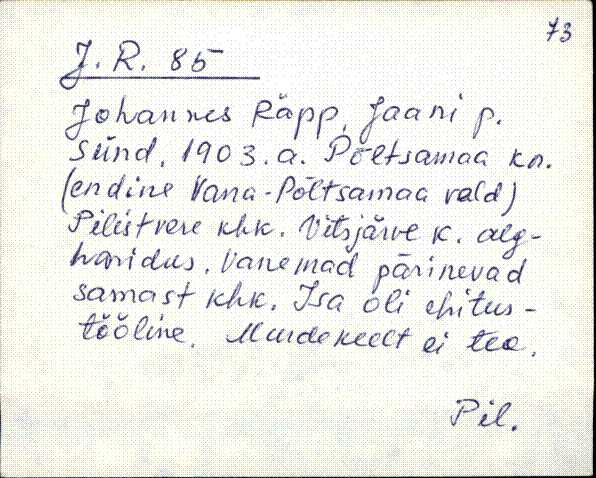 73
J. R. 85
Johannes Räpp, Jaani p.
Sünd. 1903. a. Põltsamaa kn.
(endine Vana-Põltsamaa vald)
Pilistvere khk. Vitsjärve k. alg-
haridus. Vanemad pärinevad
samast khk. Isa oli ehitus-
tööline. Murdekeelt ei tea.
Pil.